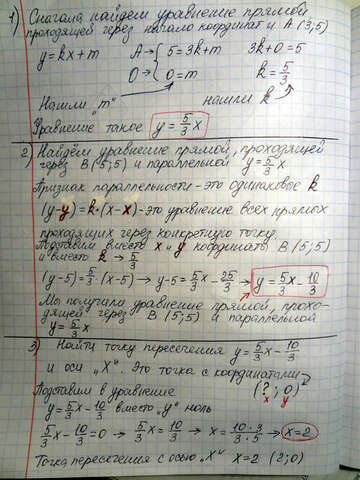 1) Сначала найдем уравнение прямой
проходящей через начало координат и A (3,5)
y=kx+m A→ 5=3k+m 3k+0=5
O→ 0=m k=5/3
Нашли "m" нашли k
Уравнение такое y=5/3x
2) Найдём уравнение прямой, проходящей
через B (5;5) и параллельной y=5/3x
Признак параллельности - это одинаковые k
(y-y)=k·(x-x) - это уравнение всех прямых
проходящих через конкретную точку
Подставим вместо x и y координаты B (5,5)
и вместо k → 5/3
(y-5)=5/3·(x-5) → y-5=5/3x-25/3 → y=5/3x-10/3
Мы получили уравнение прямой, прохо-
дящей через B (5;5) и параллельной
y=5/3x
3) Найти точку пересечения y=5/3x-10/3
и оси "X". Это точка с координатами
Подставим в уравнение (?;0)
x y
y=5/3x-10/3 вместо "y" ноль
5/3x-10/3=0 → 5/3x=10/3 → x=10·3/3·5 → x=2
Точка пересечения с осью "X" x=2 (2;0)